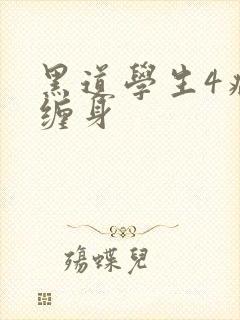 黑道學生4
缠身
殤蝶兒